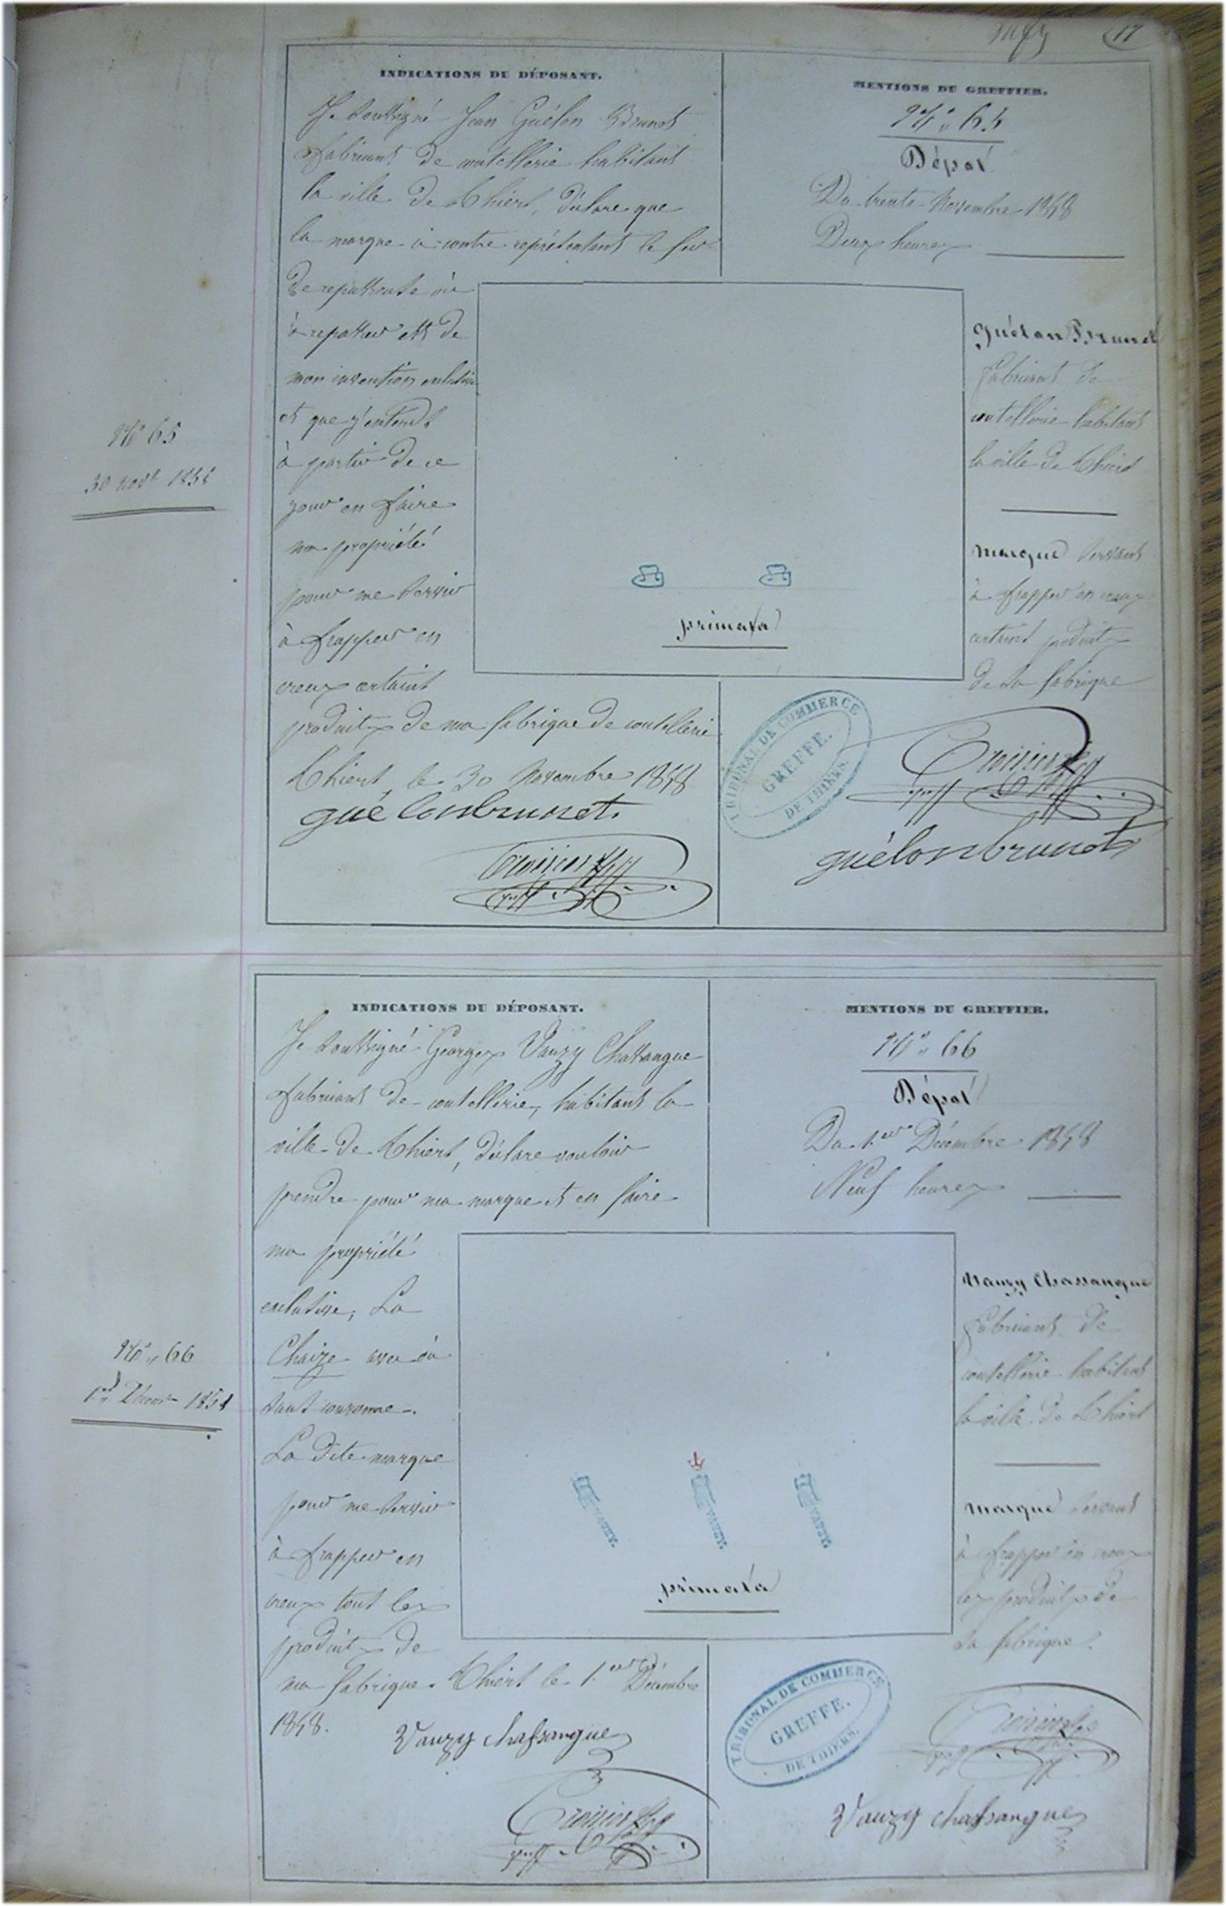 17
INDICATIONS DU DÉPOSANT.
Je soussigné Jean Guélon Brunot
fabricant de coutellerie habitant
la ville de Thiers, déclare que
la marque ci contre représentant le fer
de repasseuse ou
à repasser est de
mon invention exclusive
et que j'entends
à partir de ce
jour en faire
ma propriété
pour me servir
à frapper en
creux certains
produits de ma fabrique de coutellerie
Thiers le 30 Novembre 1858
guélonbrunet.
MENTIONS DU GREFFIER.
N° 65
Dépôt
Du trente Novembre 1858
Deux heures
Guélon Brunet
fabricant de
coutellerie habitant
la ville de Thiers
marque servant
à frapper en creux
certains produits
de sa fabrique
guélonbrunet
N° 65
30 novb 1858
primata
TRIBUNAL DE COMMERCE
GREFFE.
DE THIERS.
INDICATIONS DU DÉPOSANT.
Je soussigné Georges Vauzy Chassangue
fabricant de coutellerie, habitant la
ville de Thiers, déclare vouloir
prendre pour ma marque et en faire
ma propriété
exclusive, La
Chaize avec ou
sans couronne.
La dite marque
pour me servir
à frapper en
creux tous les
produits de
ma fabrique. Thiers le 1er Décembre
1858.
Vauzy chassangue
MENTIONS DU GREFFIER.
N° 66
Dépôt
Du 1er Décembre 1858
Neuf heures
Vauzy Chassangue
fabricant de
coutellerie habitant
la ville de Thiers
marque servant
à frapper en creux
les produits de
sa fabrique.
Vauzy chassangue
N° 66
1er Décem 1858
VAUZY.
VAUZY.
VAUZY.
primata
TRIBUNAL DE COMMERCE
GREFFE.
DE THIERS.